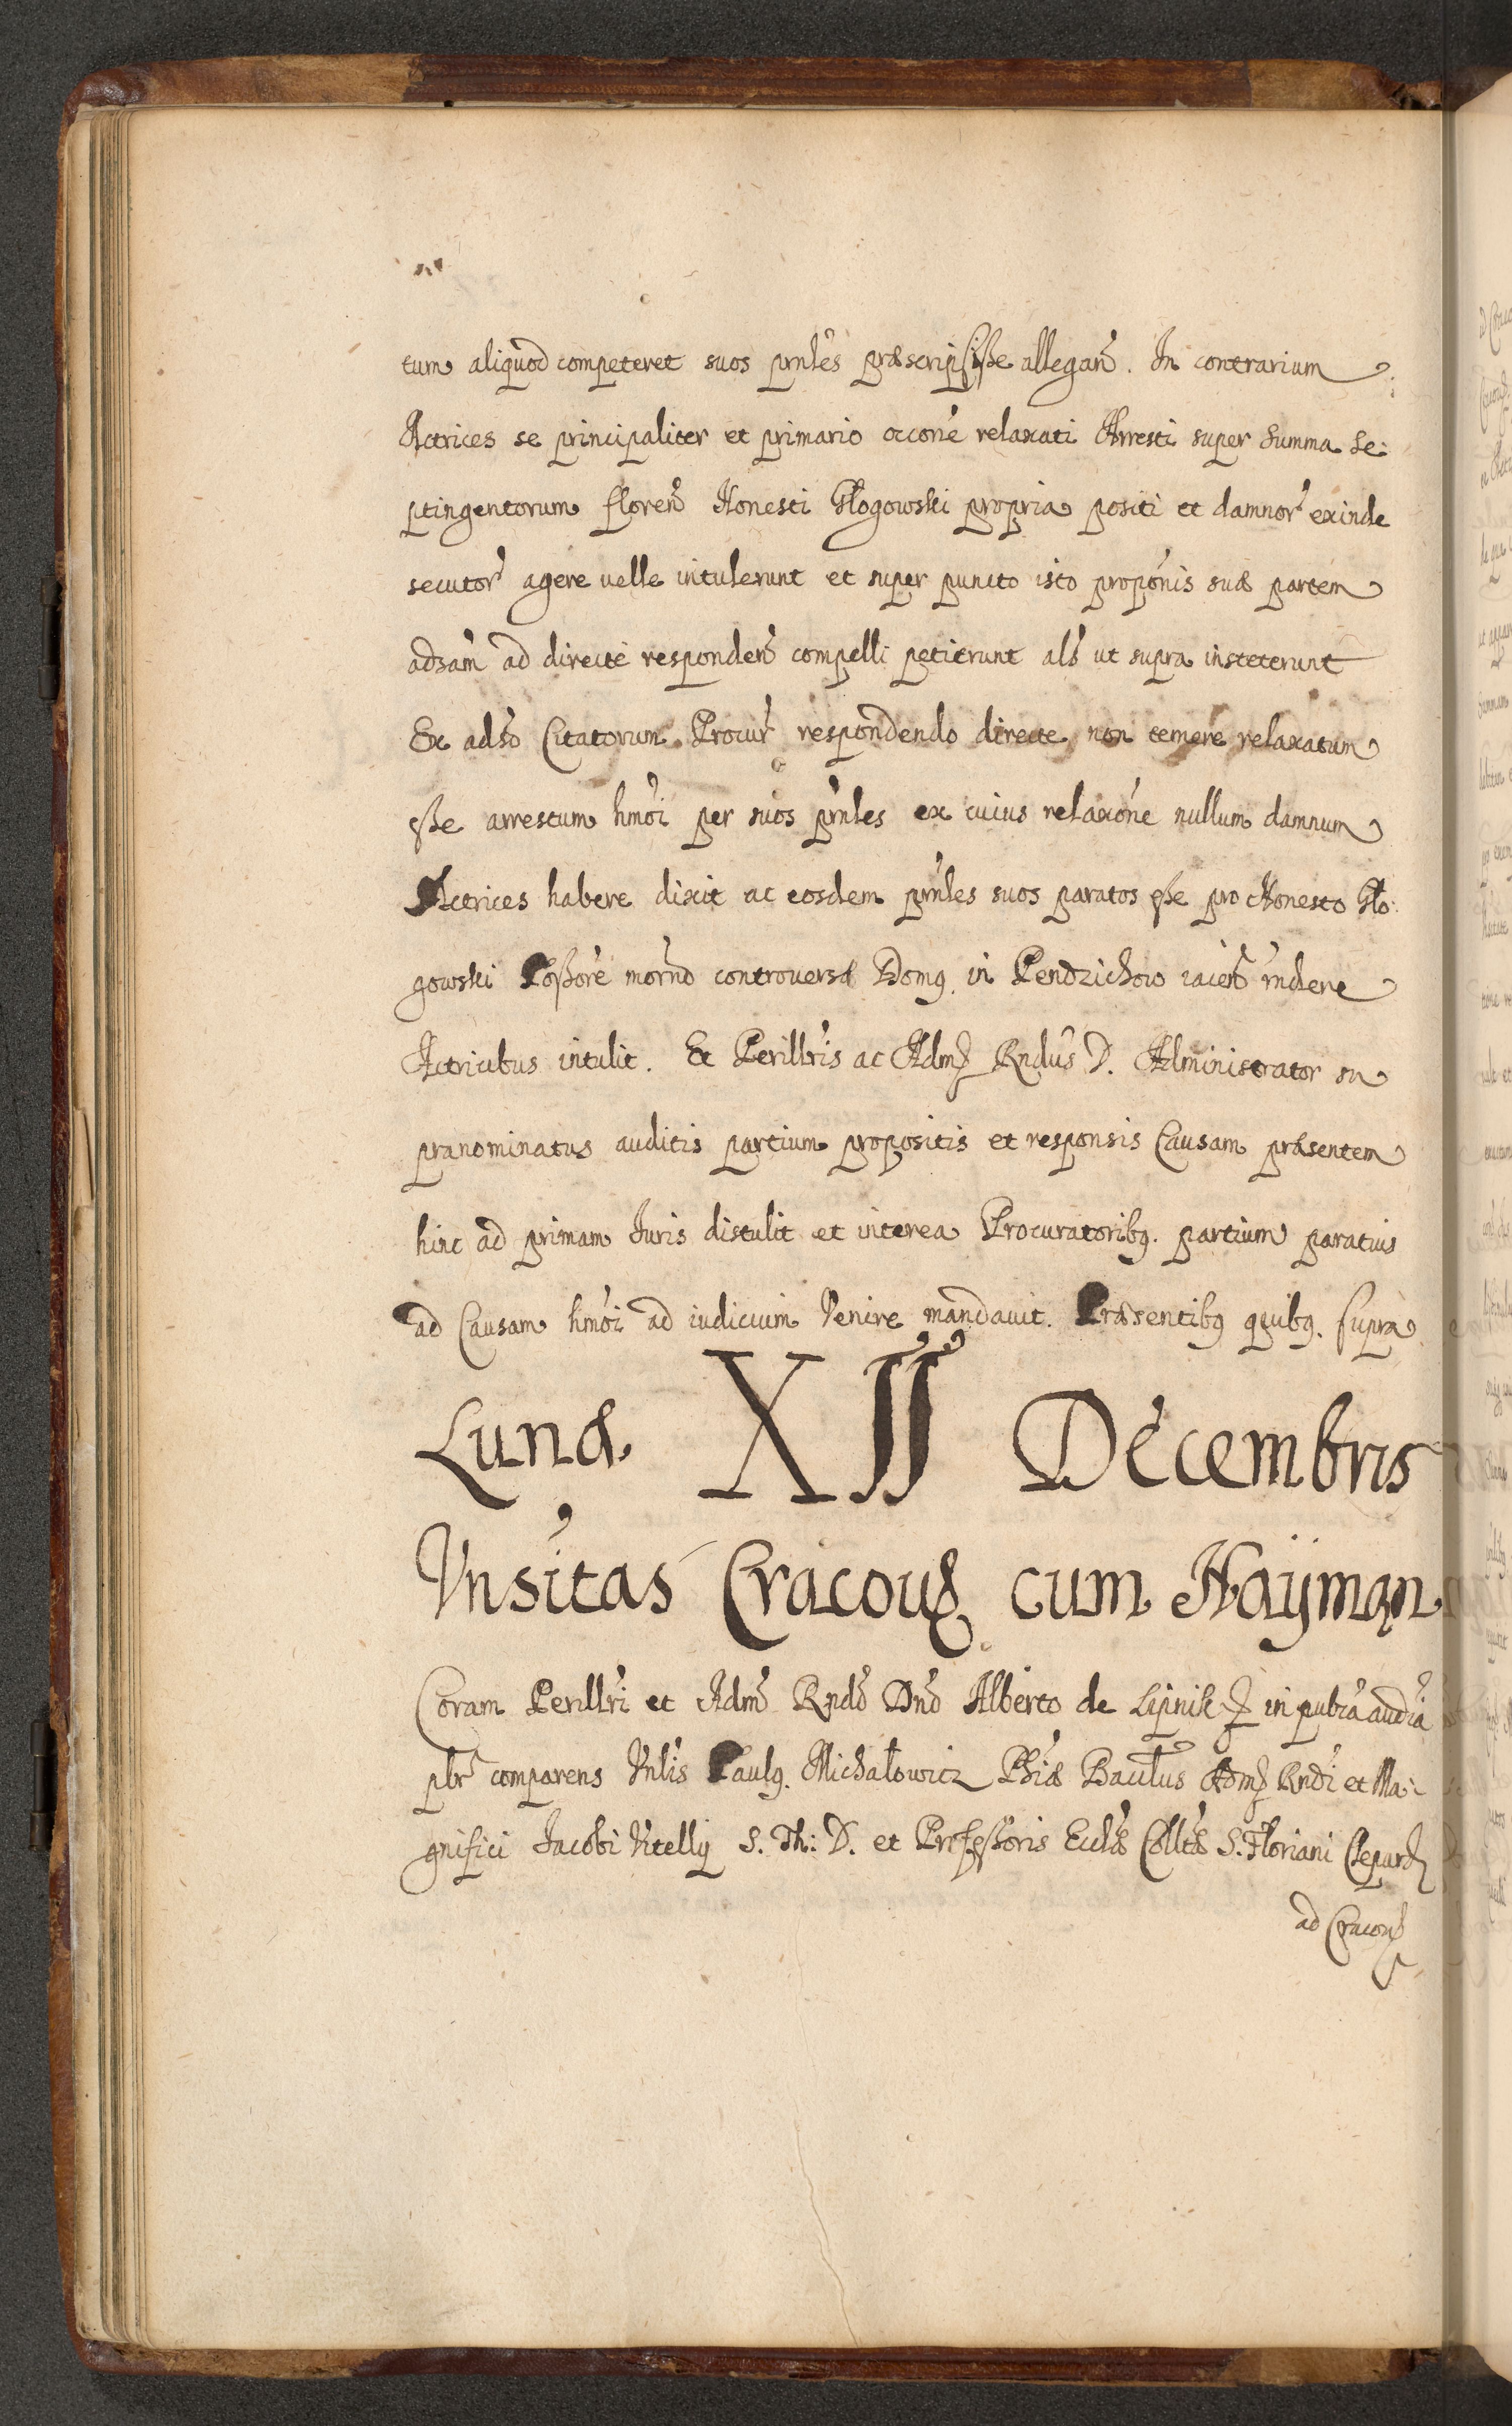 tum aliquod competeret suos prnles præscripsisse allegan̄. In contrarium
Actrices se principaliter et primario occone relaxati Arresti super Summa Se:
ptingentorum floren̄ Honesti Głogowski propria positi et damnor̄ exinde
secutor̄ agere uelle intulerunt et super puncto isto proponis suæ partem
adsam ad directe responden̄ compelli petierunt als ut supra insteterunt
Ex adso Citatorum Procur̄ respondendo directe non temere relaxatum
esse arrestum hmoi per suos prnles ex cuius relaxone nullum damnum
Actrices habere dixit ac eosdem prnles suos paratos esse pro Honesto Gło:
gowski Possore morno controversæ Domq. in Pendzichow iacen̄ rndere
Actricibus intulit. Et Perillris ac Admʒ Rndus D. Administrator su
pranominatus auditis partium propositis et responsis Causam præsentem
hinc ad primam Iuris distulit et interea Procuratoribq. partium paratius
ad Causam hmoi ad iudicium Venire mandauit. Præsentibq quibq. supra
Lunæ XII Decembris
Vnsitas Cracouʒ cum Haÿman
Coram Perillri et Adm Rndo Dno Alberto de Lipnik ʒ in publca audia
plr comparens Vnlis Paulq. Michałowicz Phiæ Baccłus Admʒ Rndi et Ma:
gnifici Jacobi Vitellÿ S. Th: D. et Professoris Eclæ Colltæ S. Floriani Cleparʒ
ad Cracouʒ